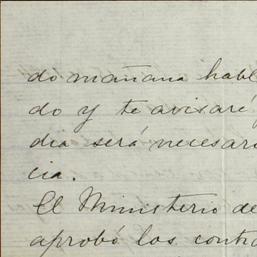 do mañana habl
do y te avisaré
dia será necesar
cia.
El Ministerio de
aprobó los contr